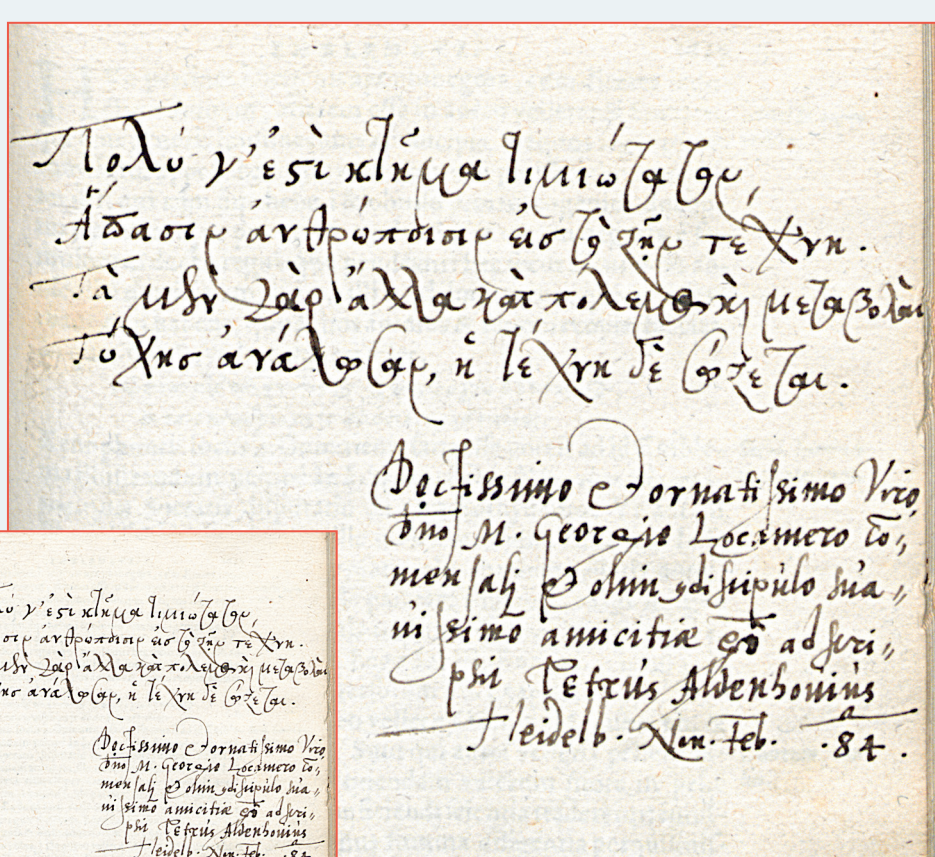 Πολύ γ' ἐστὶ κτῆμα τιμιώτατον,
Ἅπασιν ἀνθρώποισιν εἰς τὸ ζῆν τέχνη.
Τὰ μὲν γὰρ ἄλλα καὶ πόλεμος καὶ μεταβολαὶ
Τύχης ἀνάλωσαν, ἡ τέχνη δὲ σώζεται.
Doctissimo & ornatissimo Viro
dno M. Georgio Locamero co=
mensalj & olim condiscipulo sua=
uissimo amicitiæ ergò adscri=
psit Petrus Aldenhouius
Heidelb. Non. Feb. .84.
γ' ἐστὶ κτῆμα τιμιώτατον,
ἀνθρώποισιν εἰς τὸ ζῆν τέχνη.
γὰρ ἄλλα καὶ πόλεμος καὶ μεταβολαὶ
ἀνάλωσαν, ἡ τέχνη δὲ σώζεται.
Doctissimo & ornatissimo Viro
dno M. Georgio Locamero co=
mensalj & olim condiscipulo sua=
uissimo amicitiæ ergò adscri=
psit Petrus Aldenhouius
Heidelb. Non. Feb. .84